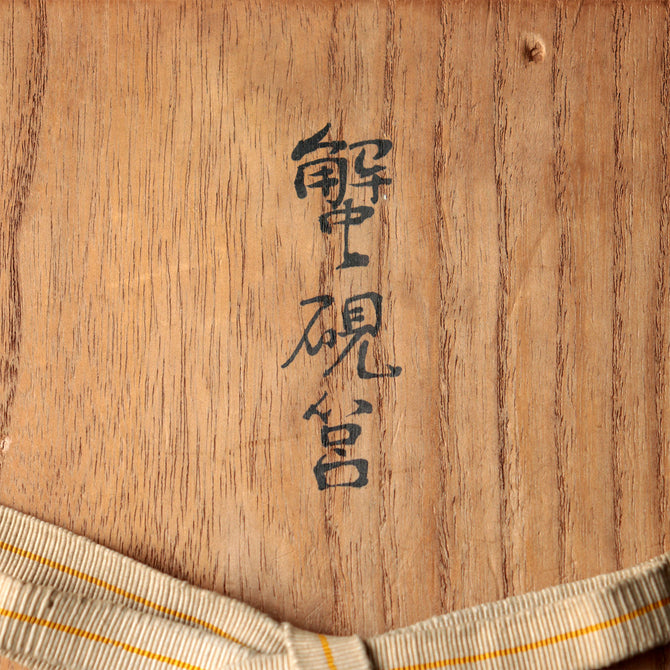 蟹硯筥